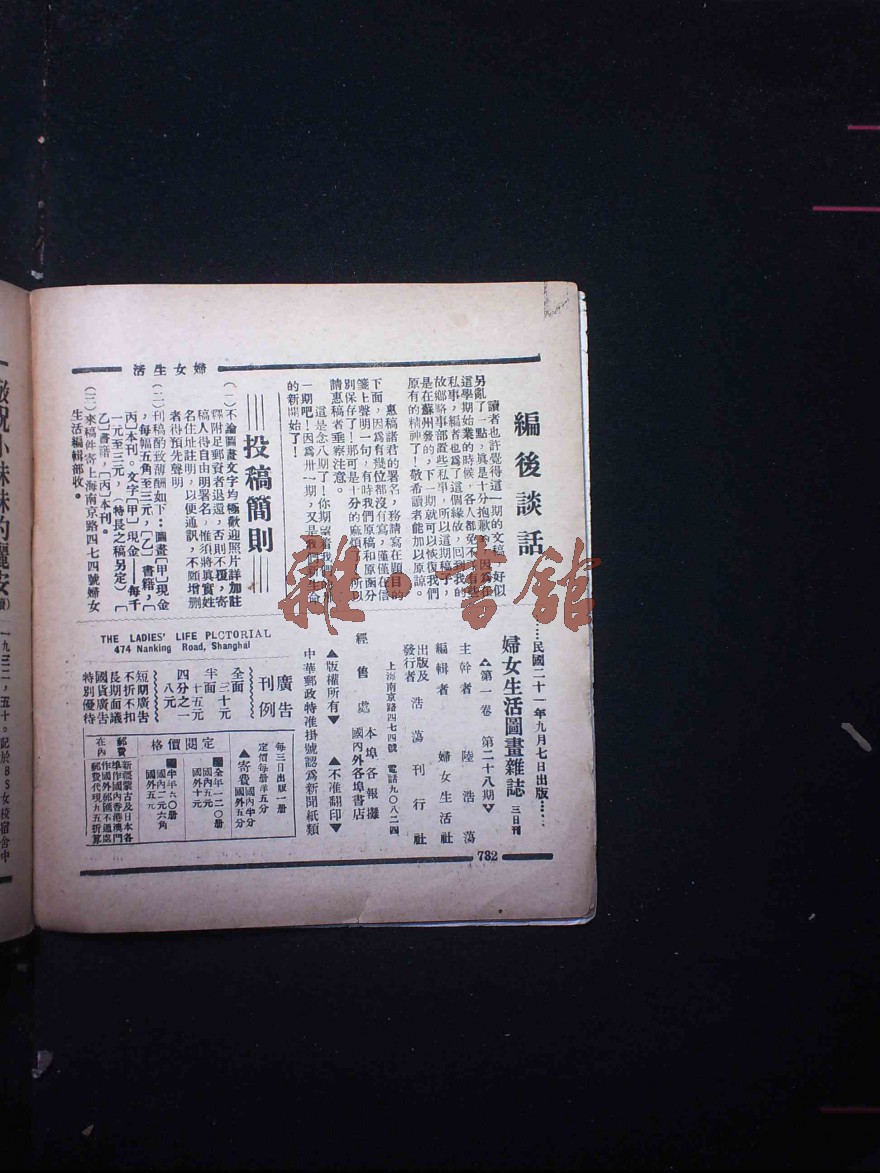 婦女生活
編後談話
讀者也許覺得這一期的文稿，好似
另亂了一點，真是十分抱歉的，因為在
這學期始業的時候，各人都免不了有些
私事，編者也為了這個緣故，回到我的
故鄉略事部置些私事，所以這期稿子，
是在蘇州發的，下一期就可以恢復我們
原有的精神了！敬希讀者能加以原諒。
惠稿諸君的署名，務請寫在題目的
下面，因為有幾位都沒有寫，僅僅在信
箋上聲明一句，有時我們原稿和原函分
別保存了！那可是十分的麻煩，所以
請惠稿者垂察注意。
這是念八期了！你期望着我們的卅
一期吧！因為卅一期，又是我們新生命
的新開始了！
投稿簡則
(一)不論圖畫文字均極歡迎照片詳加註
釋附足郵資者退還，否則不覆，寄
稿人得自由明署名，惟須將真實姓
名住址註明，以便通訊，不願增删
者得預先聲明
(二)刊稿酌致薄酬如下：圖畫[甲]現金
，每幅五角至三元，[乙]書籍，[
丙]本刊。文字[甲]現金——每千
一元至三元，(特長之稿另定)[
乙]書籍，[丙]本刊。
(三)來稿件寄上海南京路四七四號婦女
生活編輯部收。
……民國二十一年九月七日出版……
婦女生活圖畫雜誌 三日刊
第一卷 第二十八期
主幹者 陸浩蕩
編輯者 婦女生活社
出版及發行者 浩蕩刊行社
上海南京路四七四號 電話九〇八二四
經售處 本埠各報攤
國內外各埠書店
▲版權所有▼ ▲不准翻印▼
中華郵政特准掛號認為新聞紙類
THE LADIES' LIFE PLCTORIAL
474 Nanking Road, Shanghai
廣告刊例
全面 三十元
半面 十五元
四分之一 八元
短期廣告
不折不扣
長期面議
國貨廣告
特別優待
每三日出版一册
定價每册洋五分
▲寄費 國內半分
國外五分
定閱價格
全年一二〇册
國內五元
國外十元
半年六〇册
國內二元六角
國外五元
郵費在內
新疆蒙古及日本各
準作國內香港澳門
作國外郵匯不通處
郵費代現九五折算
782
雜書館
一九三二，五十。記於BS女校宿舍中